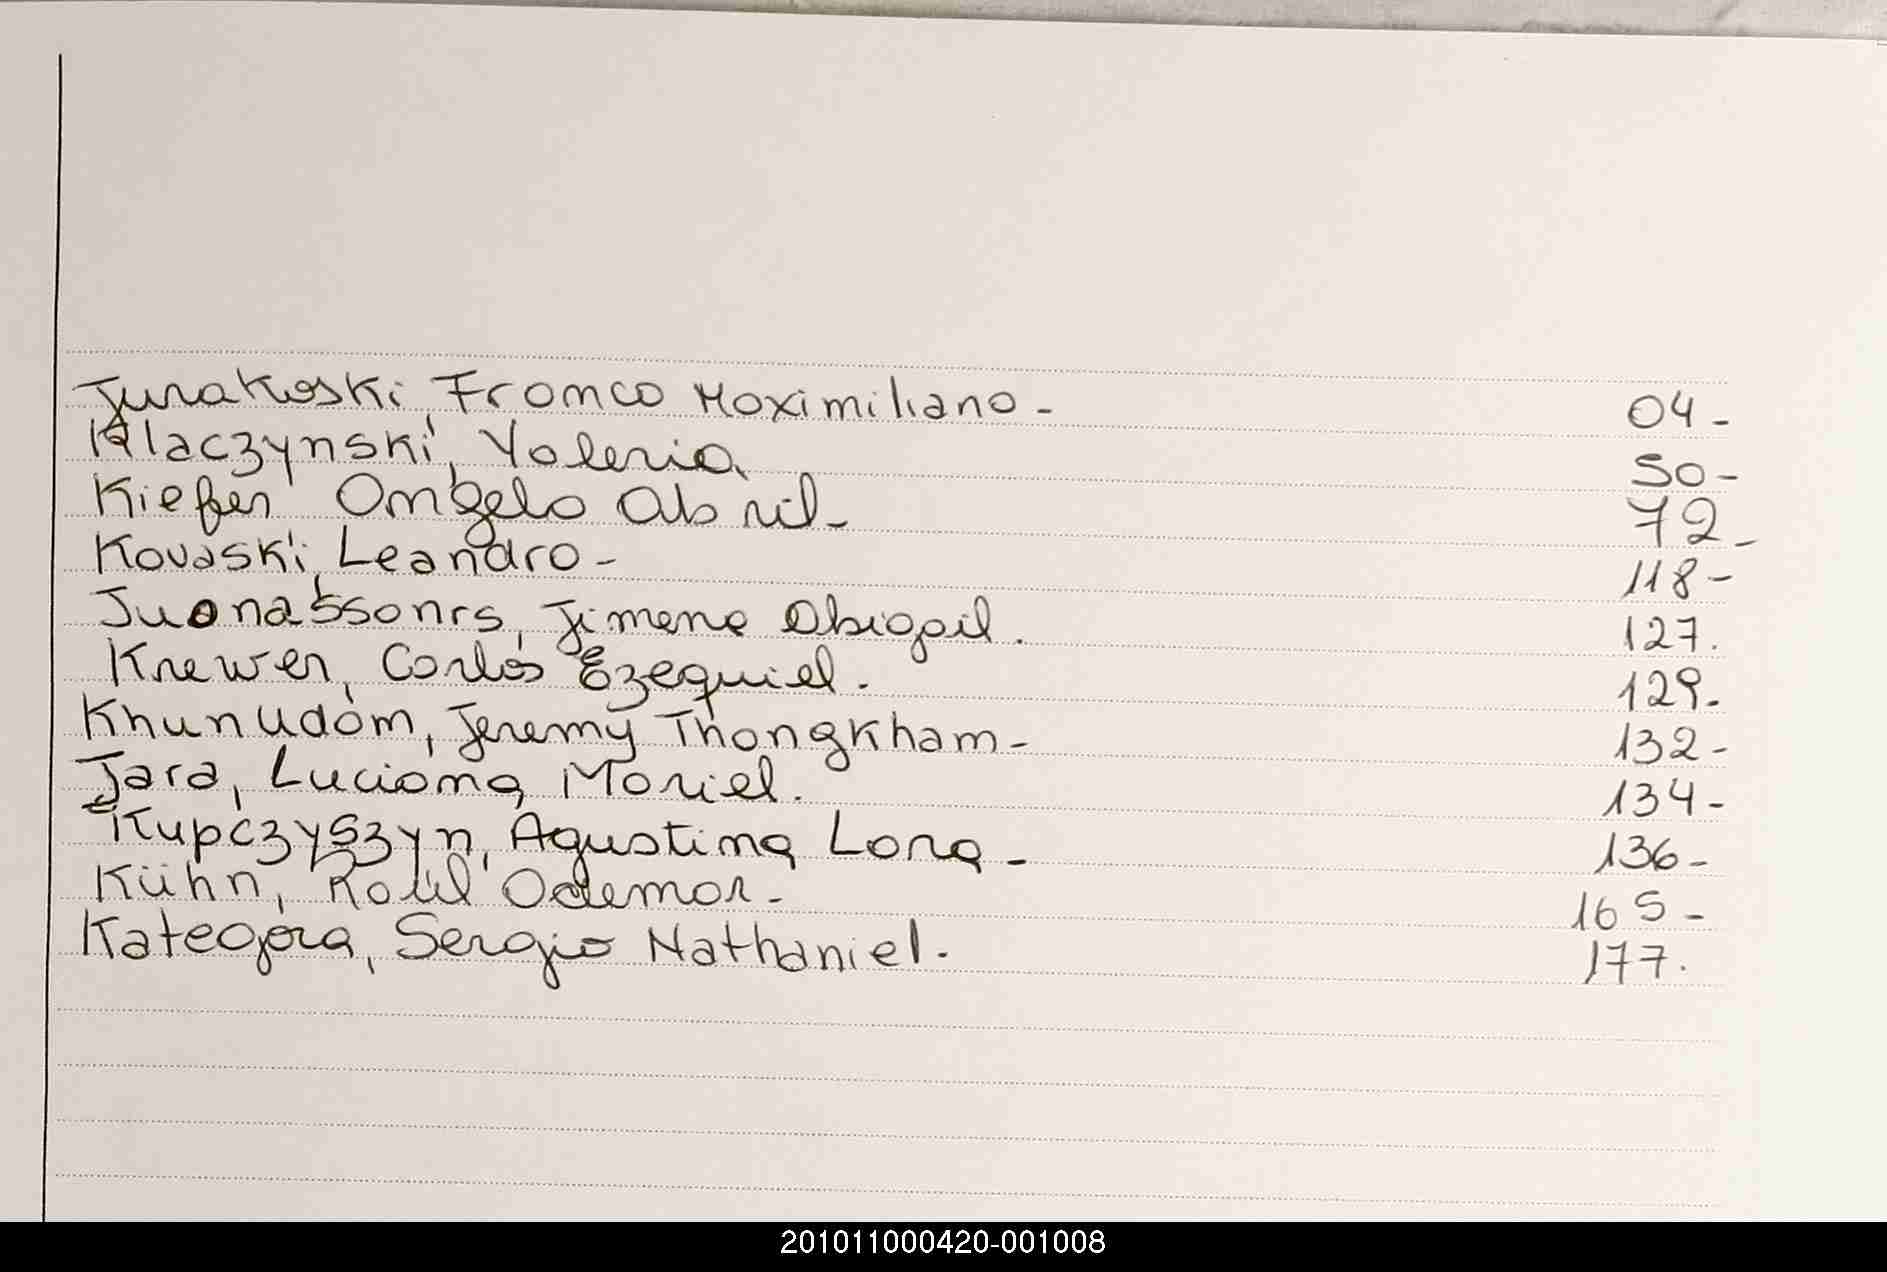 Jurakoski, Franco Maximiliano - 04-
Klaczynski, Valeria 50-
Kiefer Angelo Abril - 72-
Kovaski, Leandro - 118-
Juanassonrs, Jimena Abigail. 127.
Krewer, Carlos Ezequiel. 129.
Khunudom, Jeremy Thongkham - 132-
Jara, Luciana Mariel. 134-
Kupczyszyn, Agustina Lara - 136-
Kühn, Raúl Odemar - 165-
Kategora, Sergio Nathaniel. 177.
201011000420-001008